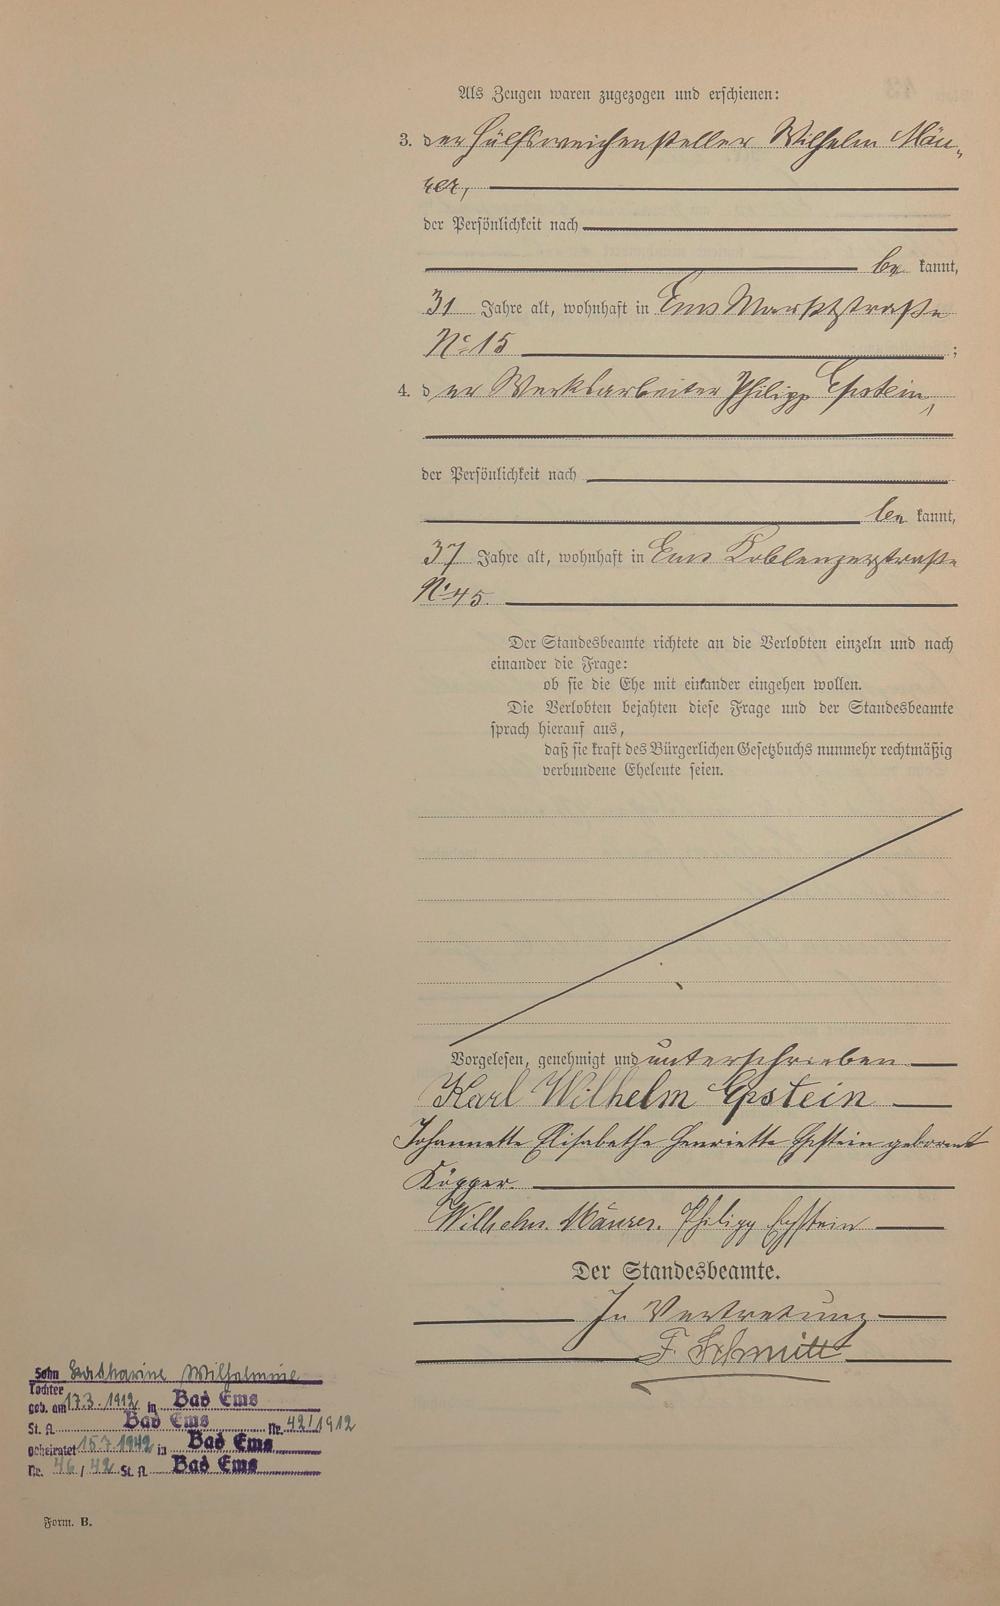 Als Zeugen waren zugezogen und erschienen:
3. der Hülfsweichensteller Wilhelm Mäu-
rer,
der Persönlichkeit nach
be kannt,
31 Jahre alt, wohnhaft in Ems Marktstraße
No 15 ;
4. der Werksarbeiter Philipp Epstein,
der Persönlichkeit nach
be kannt,
37 Jahre alt, wohnhaft in Ems Koblenzerstraße
No 45.
Der Standesbeamte richtete an die Verlobten einzeln und nach
einander die Frage:
ob sie die Ehe mit einander eingehen wollen.
Die Verlobten bejahten diese Frage und der Standesbeamte
sprach hierauf aus,
daß sie kraft des Bürgerlichen Gesetzbuchs nunmehr rechtmäßig
verbundene Eheleute seien.
Vorgelesen, genehmigt und unterschrieben
Karl Wilhelm Epstein
Johannette Elisabethe Henriette Epstein geborene
Köpper.
Wilhelm Mäurer. Philipp Epstein
Der Standesbeamte.
In Vertretung
F. Schmitt
Sohn Katharine Wilhelmine
Tochter
geb. am 17.3.1912 in Bad Ems
St. A. Bad Ems Nr. 42/1912
geheiratet 15.7.1942 in Bad Ems
Nr. 46/42 St. A. Bad Ems
Form. B.